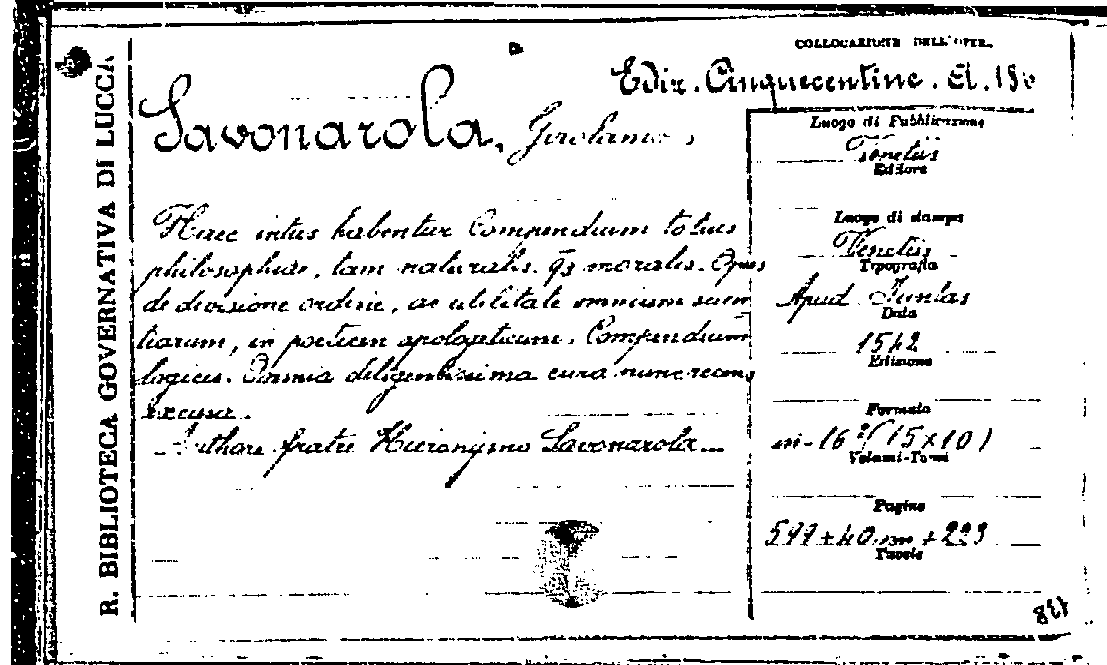 R. BIBLIOTECA GOVERNATIVA DI LUCCA
COLLOCAZIONE DELL'OPERA
Ediz. Cinquecentine. El. 18
Savonarola, Girolamo,
Haec intus habentur Compendium totius
philosophiae, tam naturalis, qs moralis. Opus
de divisione ordine, ac utilitate omnium scien
tiarum, in poeticen apologeticum. Compendium
logices. Omnia diligentissima cura nunc recens
excusa.
Authore fratre Hieronymo Savonarola...
Luogo di Pubblicazione
Venetiis
Editore
Luogo di stampa
Venetiis
Tipografia
Apud Juntas
Data
1542
Edizione
Formato
in-16° (15x10)
Volumi-Tomi
Pagine
+ 40 nn +
Tavole